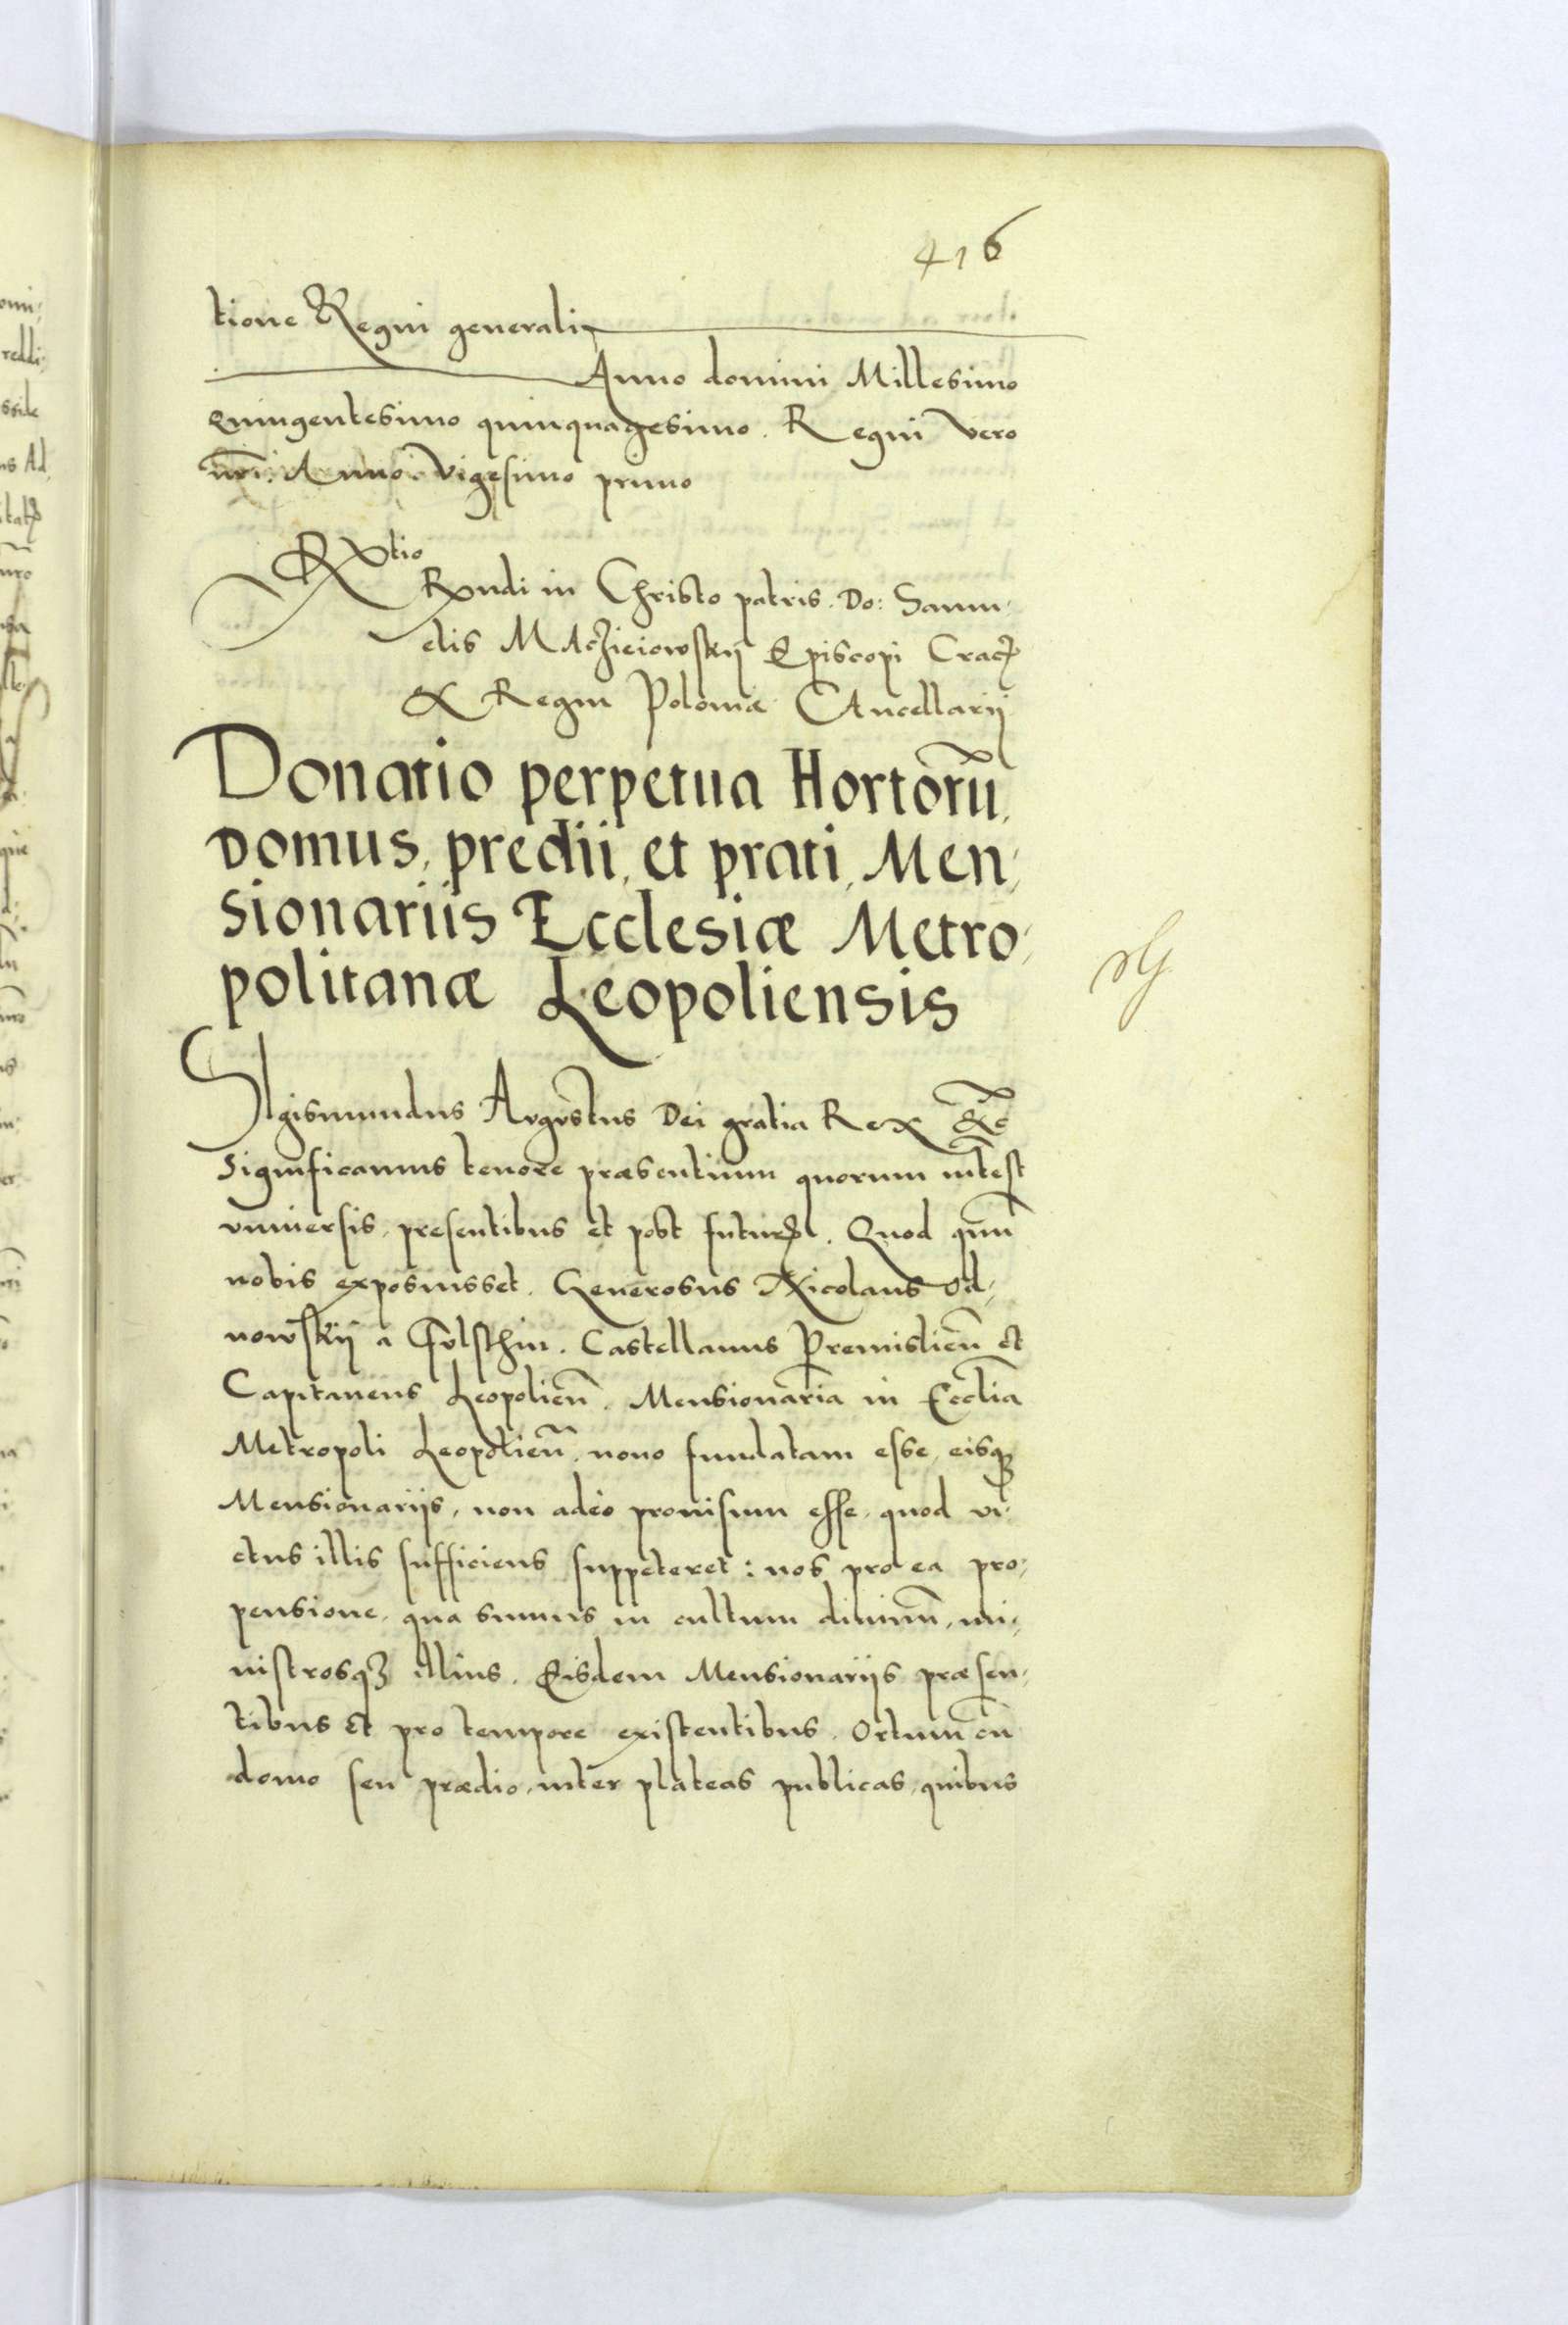 416
tione Regni generali
Anno domini Millesimo
Quingentesimo quinquagesimo. Regni vero
nrĩ. Anno. Vigesimo primo
Rxtio
Rxndi in Christo patris. Do: Samu,
elis MAcżieiowskij Episcopi Crac
& Regni Poloniæ CAncellarij
Donatio perpetua Hortorũ,
Domus, predii, et prati, Men,
sionariis Ecclesiæ Metro,
politanæ Leopoliensis
SIgismundus Avgvstus Dei gratia Rex &c
Significamus tenore præsentium quorum intest
vniuersis, presentibus et post futuris. Quod qum̃
nobis exposuisset. Generosus Nicolaus Od,
nowskij a Fvlsthin. Castellanus Premislieñ et
Capitaneus Leopolieñ. Mensionaria in Ecclia
Metropoli Leopolieñ. nouo fundatam esse, eisq
Mensionarijs, non adeo prouisum esse, quod vi,
ctus illis sufficiens suppeteret: nos pro ea pro,
pensione, qua sumus in cultum diuinũ, mi,
nistrosqꝫ illius. Eisdem Mensionarijs præsen,
tibus et pro tempore existentibus. Ortum cũ
domo seu prædio, inter plateas publicas, quibus